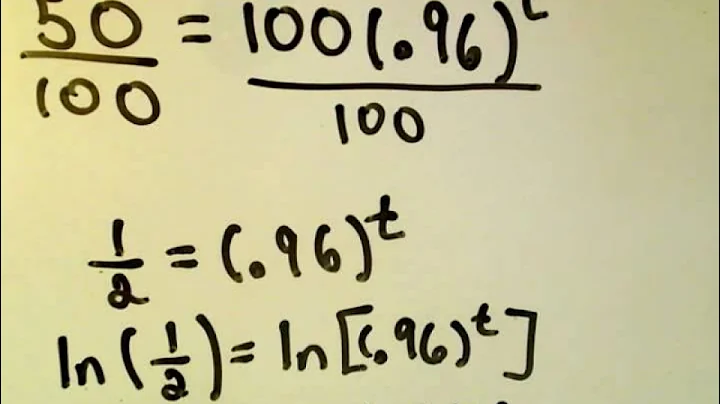 50/100 = 100(.96)^t/100
1/2 = (.96)^t
ln(1/2) = ln[(.96)^t]